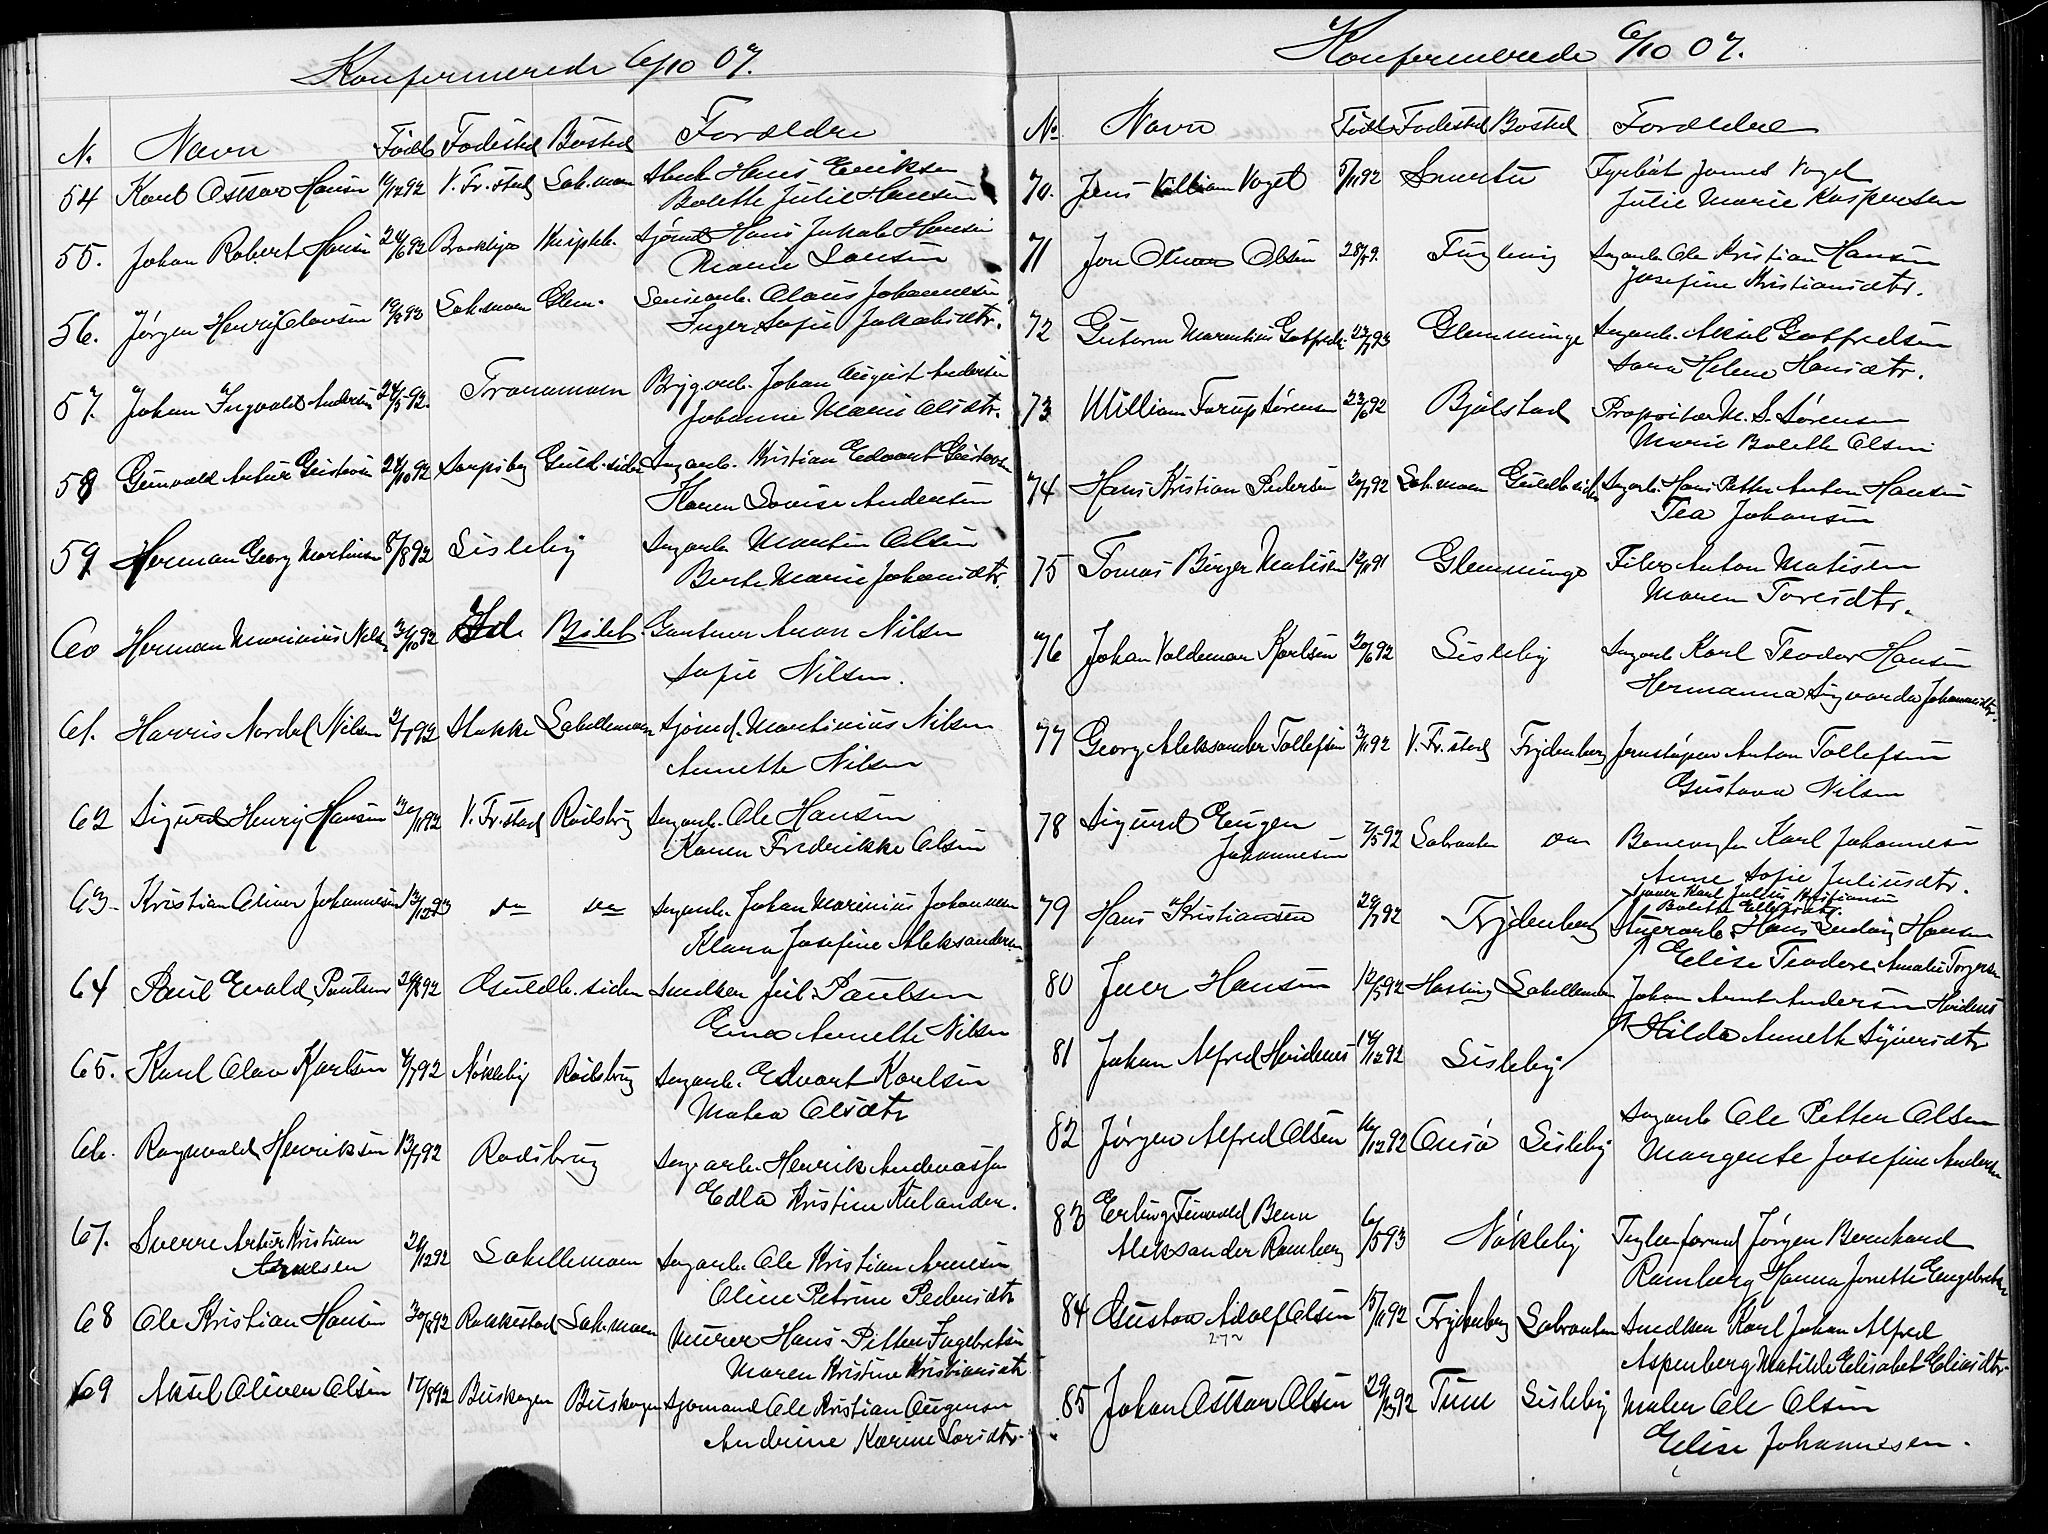 Konfirmerede 6/10 07.
N. Navn Födt Födested Bosted Foræeldre
54 Karl Oskar Hansen 11/12 92 V. Fr.stad Lah.moen Hans Eriksen
Bolette Julie Hansen
55. Johan Robert Hansen 24/6 92 Sjömd Hans Jakob Hansen
Marie
56. Jörgen Henry Olavsen 19/2 93 Lah.moen Glem. Olaus Johannesen
Inger Sofie Jakobsdtr.
57. Johan Ingvald Andersen 24/5 92. Traramoen Brygarb. Johan August Andersen
Johanne Marie Olsdtr.
58 Gunvald Artur Gustavsen 24/10 92 Sarpsbg Guldb.siden Sagarb. Kristian Edvart Gustavsen
Karen Lovise Andersen
59 Herman Georg Martinsen 8/8 92 Lisleby Sagarb. Martin Olsen
Berte Marie Johansdtr.
60 Herman Marinius Nilsen 31/10 92 Id Bilet Gartner Anon Nilsen
Sofie Nilsen.
61. Harris Nordal Nilsen 2/7 92 Stokke Lahellemoen Sjömd. Martinius Nilsen
Annette Nilsen
62 Sigurd Henry Hansen 30/11 92 V. Fr.stad Rödsbrug Sagarb. Ole Hansen
Karen Fredrikke Olsen
63- Kristian Oliver Johannesen 13/12 93 do do Sagarb. Johan Marinius Johannesen
Klara Josefine Aleksandersen
64 Paul Evald Paulsen 26/8 92 Guldb.siden Snedker Jul Paulsen
Annette Nilsen
65. Karl Olav Karlsen 4/7 92 Nökleby Rödsbrug Sagarb. Edvart Karlsen
Matea Olsdtr
66. Ragnvald Henriksen 13/7 92 Rödsbrug Sagarb. Henrik Andreassen
Edla Kristine Kulander.
67. Sverre Artur Kristian 28/12 92 Lahellemoen Sagarb. Ole Kristian Arnesen
Arnesen Oline Petrine Pedersdtr
68 Ole Kristian Hansen 30/8 92 Rakkestad Lah.moen Murer Hans Petter Ingebretsen
Maren Kristine Kristiansdtr
69 Aksel Oliver Olsen 17/8 92 Buskogen Buskogen Sjömand Ole Kristian Augensen
Andrine Karine Larsdtr.
Konfirmerede 6/10 07.
No Navn Födt Födested Bosted Foræeldre
70. Jens William Vogel 5/11 92 Smertu Fyrböt James Vogel
Julie Marie Kaspersen
71 Jon Olsen 28/ 9. Fuglevig Sagarb. Ole Kristian Hansen
Josefine Kristiansdtr.
72 Gutorm Marentius Gotfredsen 23/7 93 Glemminge Sagarb. Aksel Gotfredsen
Sara Helene Hansdtr.
73 William Farup Sörensen 23/6 92 Bjölstad Proprietær M. S. Sörensen
Marie Bolette Olsen
74 Hans Kristian Pedersen 20/7 92 Lah.moen Guldb.siden Sagarb. Hans Petter Anton Hansen
Tea Johansen
75 Tomas Birger Matisen 12/11 91 Glemminge Filer Anton Matisen
Maren Toresdtr.
76 Johan Valdemar Karlsen 20/6 92 Lisleby Sagarb Karl Teodor Hansen
Hermanna Sigvarda Johannesdtr.
77 Georg Aleksander Tollefsen 3/11 92 V. Fr.stad Frydenberg Jernstöper Anton Tollefsen
Gustava Nilsen
78 Sigurd Eugen 7/5 92 Labraaten do Banevogter Karl Johannesen
Johannesen Anne Sofie Juliusdtr.
Karl Julius Kristiansen
79 Hans Kristiansen 29/7 92 Frydenberg Bolette Ellefsdtr.
Stuerarb Hans Ludvig Hansen
80 Juer Hansen 12/5 92 Lahellemoen Elise Teodore Amalie Torgersen
Johan Arnt Andersen Hvidnes
81 Johan Alfred Hvidnes 14/12 92 Lisleby Hilda Annette Syversdtr
82 Jörgen Alfred Olsen 16/12 92 Onsö Lisleby Sagarb Ole Petter Olsen
Margrete Josefine Andersen
83 Erling Finvald Benn 6/5 93 Nökleby Teglenformd Jörgen Bernhard
Aleksander Ramberg Ramberg Hanna Jonette Engebretsen
84 Gustav Adolf Olsen 15/11 92 Frydenberg Labraaten Snedker Karl Johan Alfred
Aspenberg Matilde Elisabet Eliasdtr.
85 Johan Oskar Olsen 29/ 92 Tune Lisleby Maler Ole Olsen
Elise Johannesen.